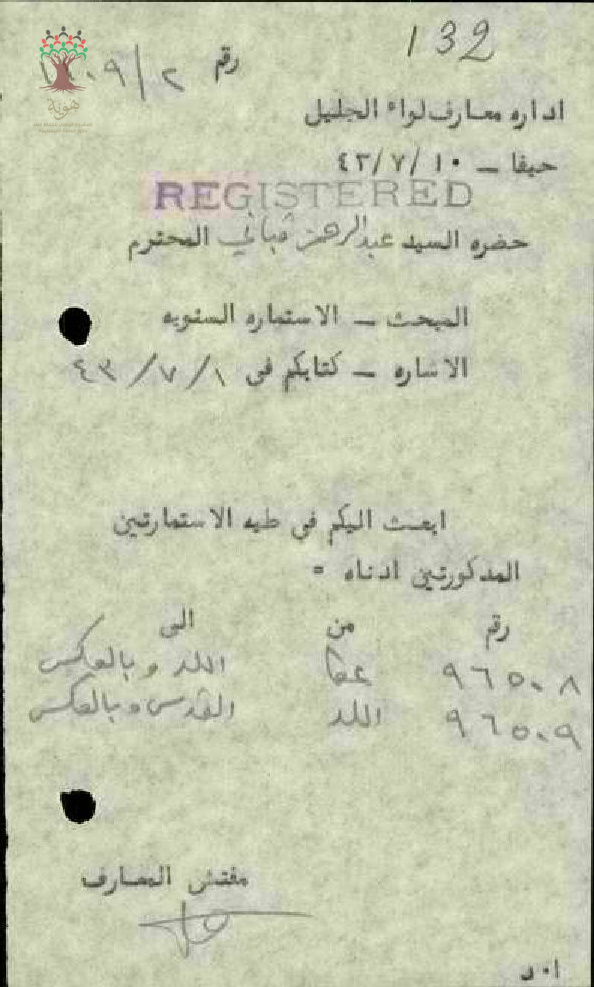 132
رقم ٩/٢
هوية
اداره معارف لواء الجليل
حيفا ـ ٤٣/٧/١٠
REGISTERED
حضره السيد عبدالرحمن قباني المحترم
المبحث ـ الاستماره السنويه
الاشاره ـ كتابكم في ٤٣/٧/١
ابعث اليكم في طيه الاستمارتين
المذكورتين ادناه =
رقم من الى
٩٦٥٠٨ عكا اللد وبالعكس
٩٦٥٠٩ اللد القدس وبالعكس
مفتش المعارف